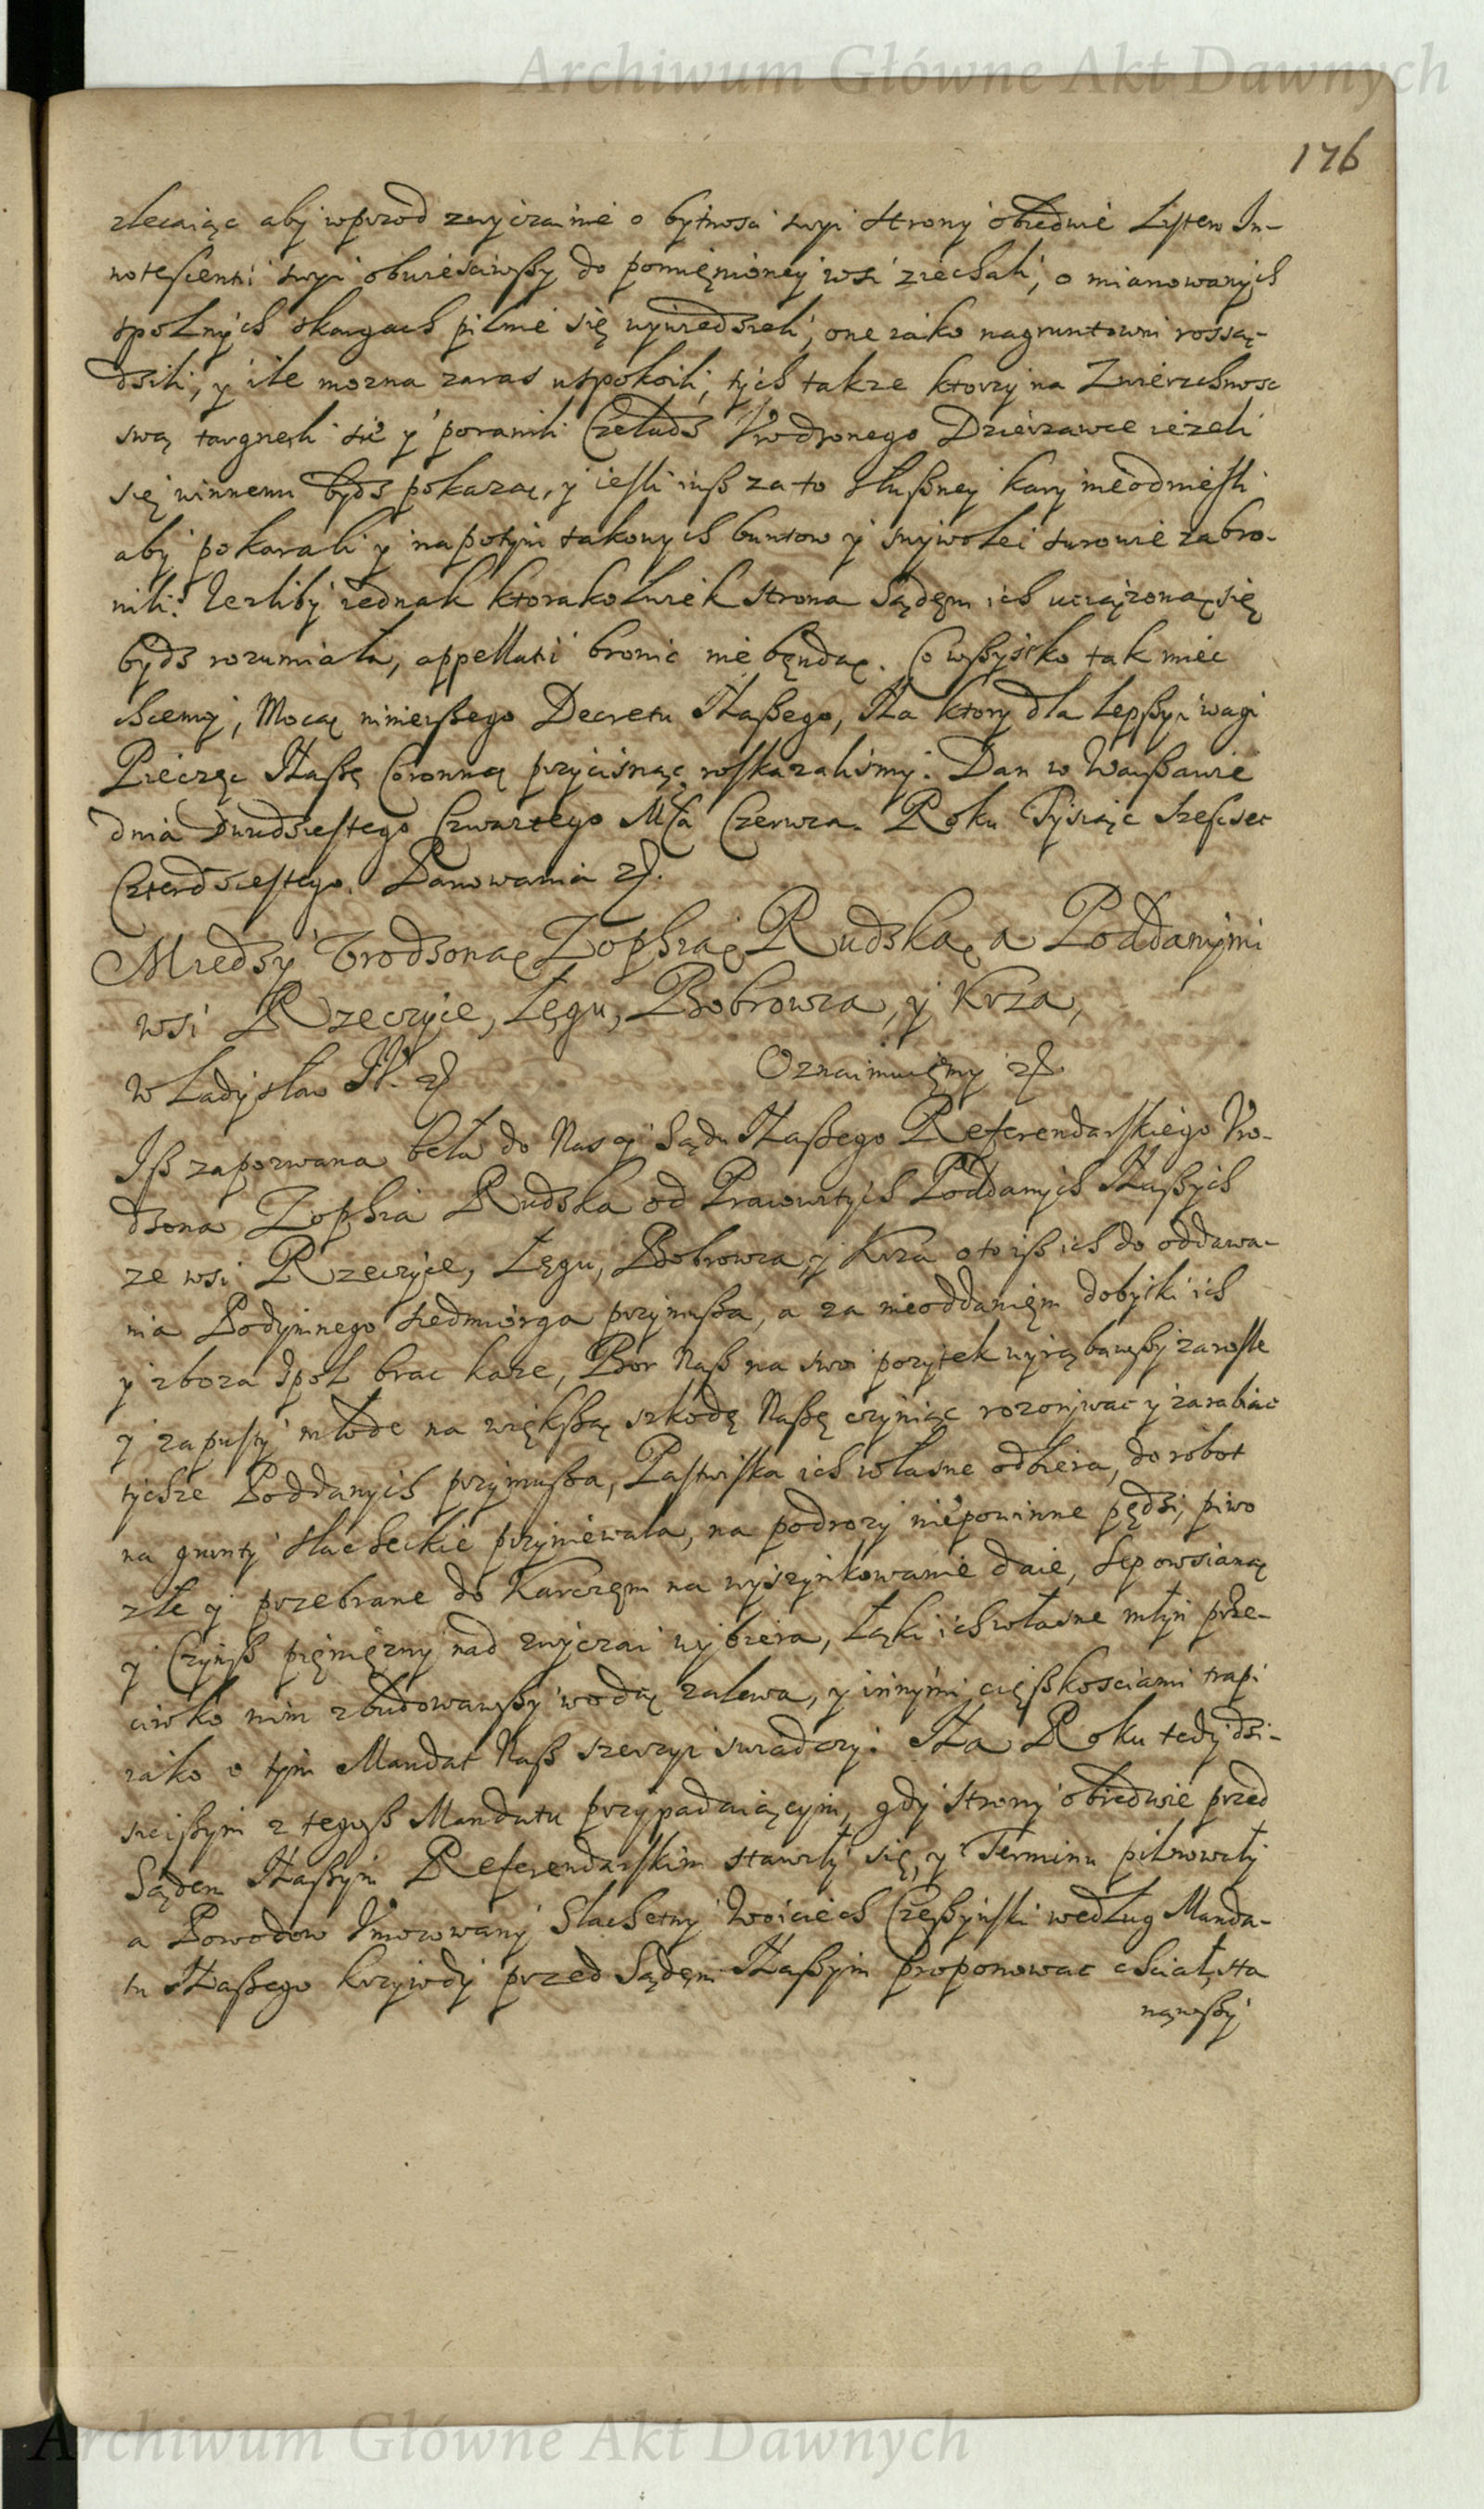 Archiwum Główne Akt Dawnych
176
zlecaiąc aby wprzod zwyczainie o bytnosci swyi strony obiedwie Listem In-
notescentii swyi obwiesciwszy do pomięnioney wsi ziechali, o mianowanych
spolnych skargach pilnie się wywiedzieli, one iako nagruntowni rossą-
dzili, y ile mozna zaras uspokoili, tych takze ktorzy na Zwierzchnosc
swą targneli sie y poranili Czeladz Vrodzonego Dzierzawce iezeli
się winnemi bydz pokazaę, y iesli iusz za to słuszney kary nieodniesli
aby pokarali y napotym takowych buntow y swywolei surowie zabro-
nili. Iezliby iednak ktorakolwiek strona Sądęm ich uciązonaę się
bydz rozumiała, appellatii bronic nie będaę. Co wszystko tak miec
chcemy, Mocaę ninieiszego Decretu Naszego, Na ktory dla lepszyi wagi
Pieczęc Naszę Coronnaę przycisnąc roskazalismy. Dan w Warszawie
dnia dwudziestego Czwartego Msca Czerwca Roku Tysiąc szescset
Czterdziestego. Panowania etc.
Miedzy Vrodzonaę Zophiaę Rudzkaę a Poddanymi
wsi Rzeczyce, Łęgu, Bobrowca, y Krza,
Władysław IV. etc Oznaimuięmy etc.
Isz zapozwana beła do Nas y Sądu Naszego Referendarskiego Vro-
dzona Zophia Rudzka od Pracowitych Poddanych Naszych
ze wsi Rzeczyce, Łęgu, Bobrowca y Krza o to isz ich do oddawa-
nia Podymnego siedmiorga przymusza, a za nieoddanięm dobytki ich
y zboza spol brac kaze, Bor Nasz na swoi pozytek wyrąbawszy zarosłe
y zapusty młode na większaę szkodę Naszę czyniąc rozorywac y zarabiac
tychze Poddanych przymusza, Pastwiska ich własne odbiera, do robot
na grunty slacheckie przyniewala, na podrozy niepowinne pędzi, piwo
złe y przebrane do Karczęm na wyszynkowanie daie, Sep owsianaę
y Czynsz pięniężny nad zwyczai wybiera, Łąki ich własne młyn prze-
ciwko nim zbudowawszy wodaę zalewa, y innymi cięszkosciami trapi
iako o tym Mandat Nasz szerzyi swiadczy. Na Roku tedy dzi-
sieiszym z tegosz Mandatu przypadaiącym, gdy strony obiedwie przed
Sądem Naszym Referendarskim stawiły się, y Terminu pilnowały
a Powodow Imiowany Slachetny Woiciech Czeszynski według Manda-
tu Naszego krzywdy przed Sądęm Naszym proponowac chciał, sta
nąwszy
Archiwum Główne Akt Dawnych